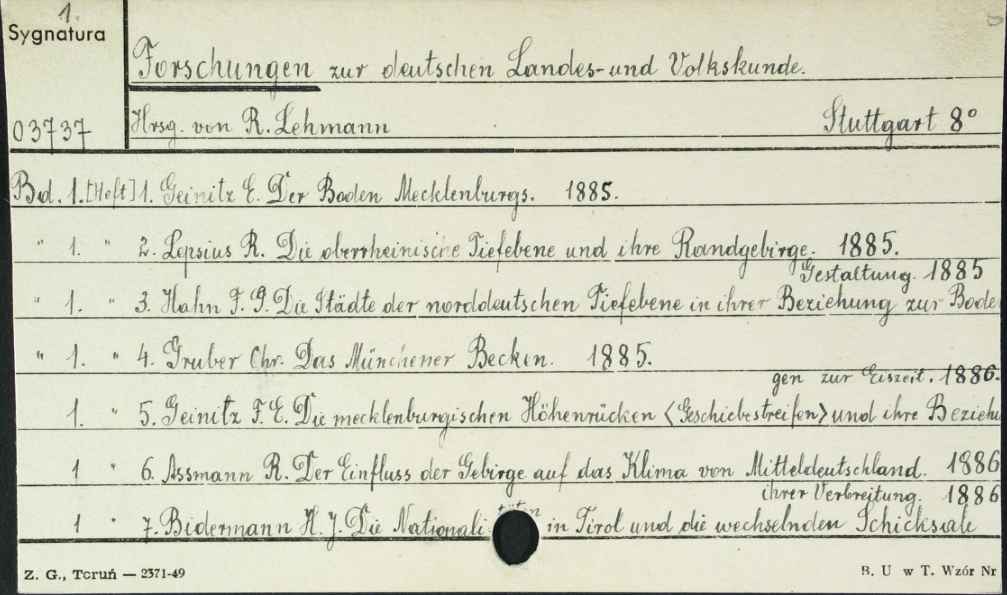 1.
Sygnatura
Forschungen zur deutschen Landes- und Volkskunde.
03737
Hrsg. von R. Lehmann Stuttgart 8°
Bd. 1. [Heft] 1. Geinitz E. Der Boden Mecklenburgs. 1885.
" 1. " 2. Lepsius R. Die oberrheinische Tiefebene und ihre Randgebirge. 1885.
Gestaltung. 1885
" 1. " 3. Hahn F. G. Die Städte der norddeutschen Tiefebene in ihrer Beziehung zur Bode
" 1. " 4. Gruber Chr. Das Münchener Becken. 1885.
gen zur Eiszeit. 1886.
1. " 5. Geinitz F. E. Die mecklenburgischen Höhenrücken <Geschiebestreifen> und ihre Beziehu
1 " 6. Assmann R. Der Einfluss der Gebirge auf das Klima von Mitteldeutschland. 1886
ihrer Verbreitung. 1886
1 " 7. Bidermann H. J. Die Nationalitäten in Tirol und die wechselnden Schicksale
Z. G., Toruń — 2371-49 B. U w T. Wzór Nr